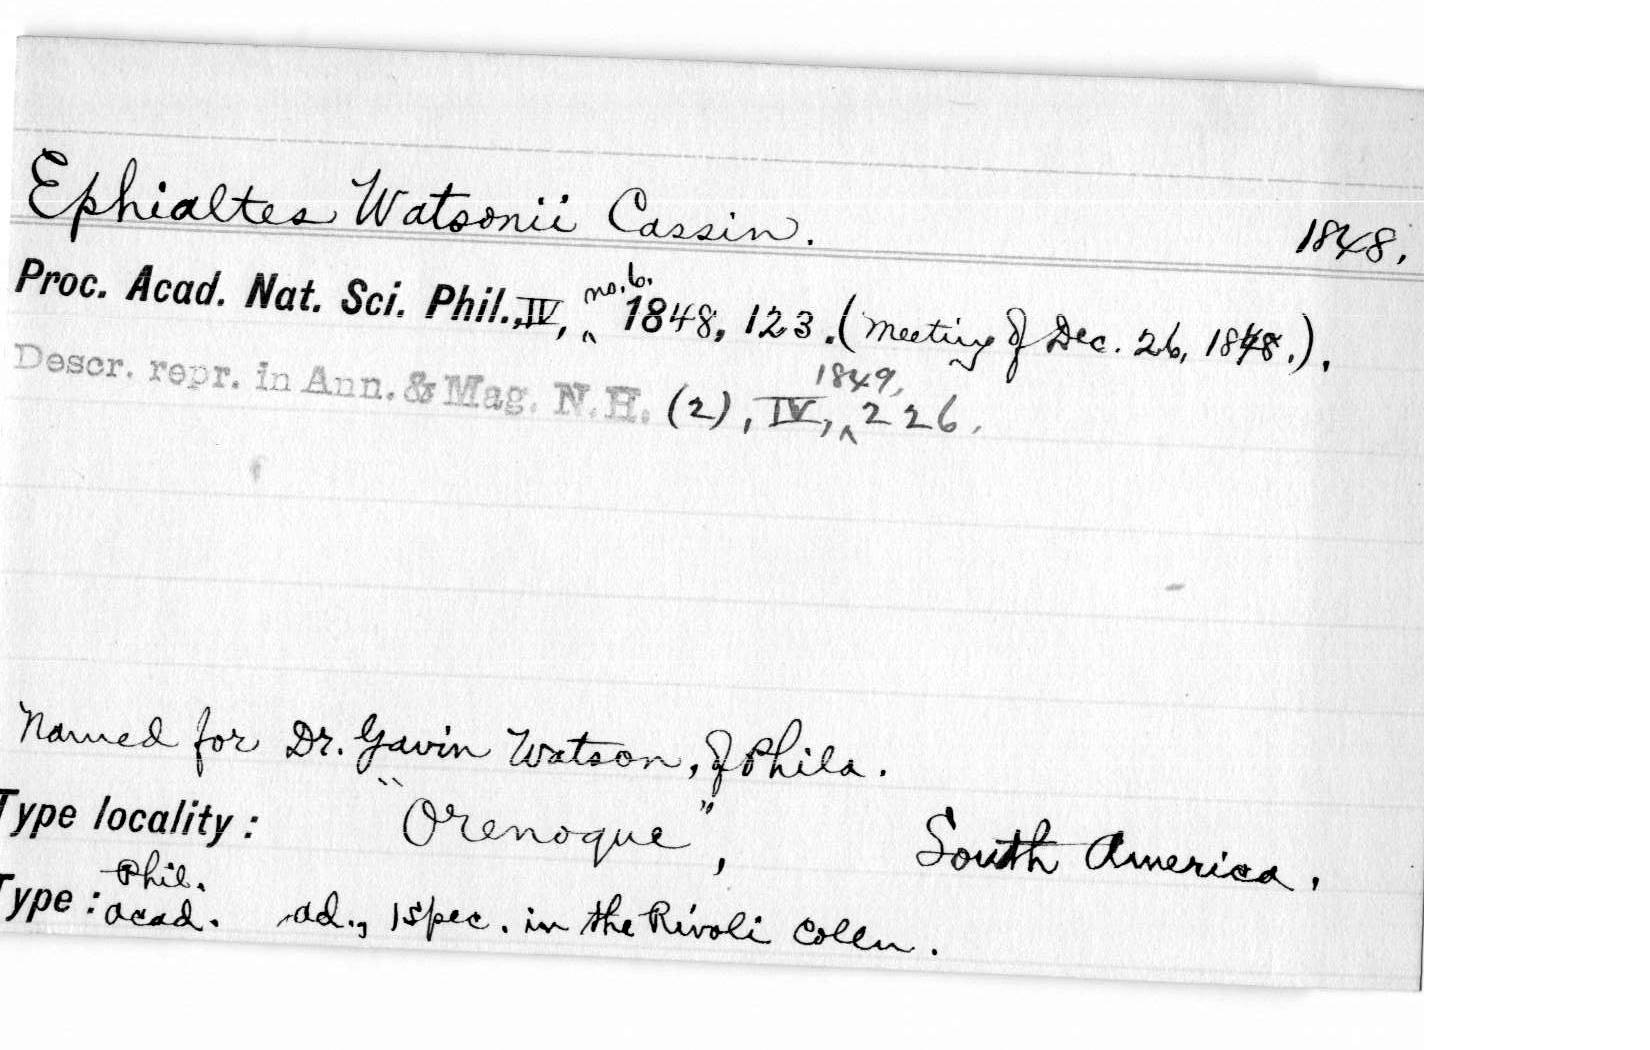 Ephialtes Watsonii Cassin. 1848.
Proc. Acad. Nat. Sci. Phil., IV, no. 6. 1848, 123. (Meeting of Dec. 26, 1848.).
Descr. repr. in Ann. & Mag. N.H. (2), IV, 1849, 226.
Named for Dr. Gavin Watson, of Phila.
Type locality: "Orenoque", South America.
Type: Phil. Acad. ad., 1 spec. in the Rivoli Colln.